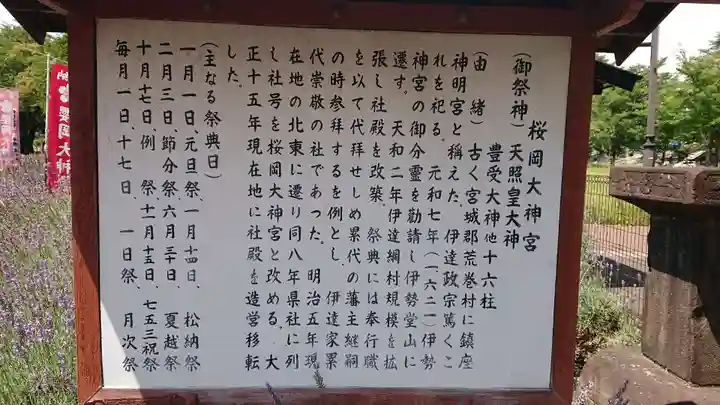 桜岡大神宮
(御祭神)天照皇大神
豊受大神他十六柱
(由緒)古く宮城郡荒巻村に鎮座
神明宮と称えた、伊達政宗篤くこ
れを祀る。元和七年(一六二一)伊勢
神宮の御分霊を勧請し伊勢堂山に
遷す。天和二年伊達綱村規模を拡
張し社殿を改築、祭典には奉行職
を以て代拝せしめ累代の藩主継嗣
の時参拝するを例とし、伊達家累
代崇敬の社であった。明治五年現
在地の北東に遷り同八年県社に列
し社号を桜岡大神宮と改める。大
正十五年現在地に社殿を造営移転
した。
(主なる祭典日)
一月一日、元旦祭、一月十四日、松納祭
二月三日節分祭六月三十日、夏越祭
十月十七日、例祭、十一月十五日、七五三祝祭
毎月一日、十七日、一日祭、月次祭
櫻岡大神